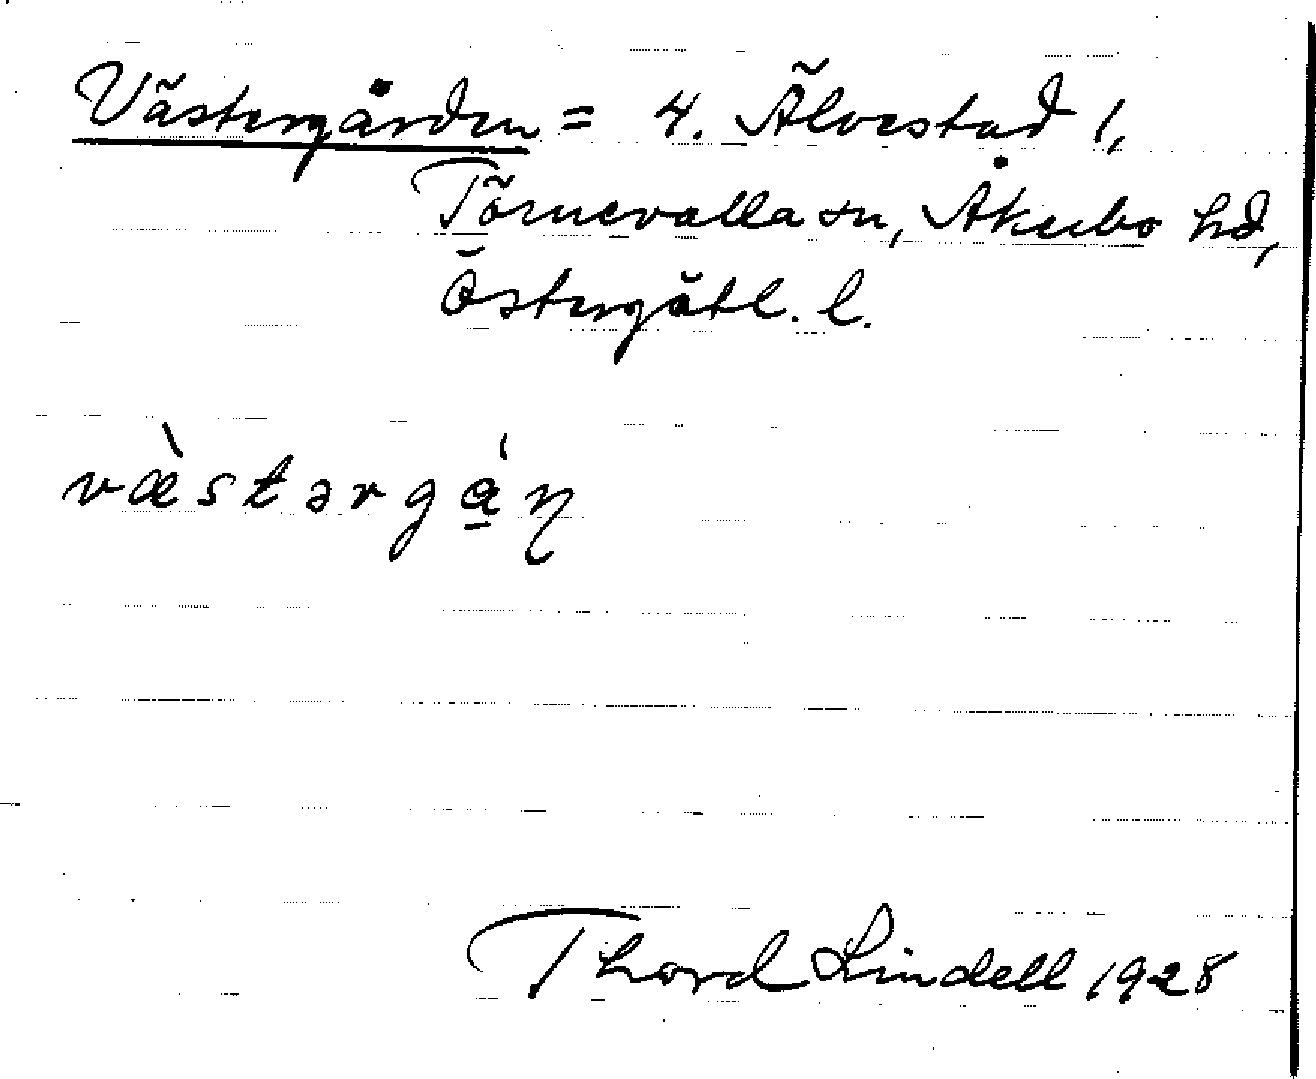 Västergården = 4. Älvestad 1,
Törnevalla sn, Åkerbo hd,
Östergötl. l.
væ̀stərgá̱ɳ
Thord Lindell 1928